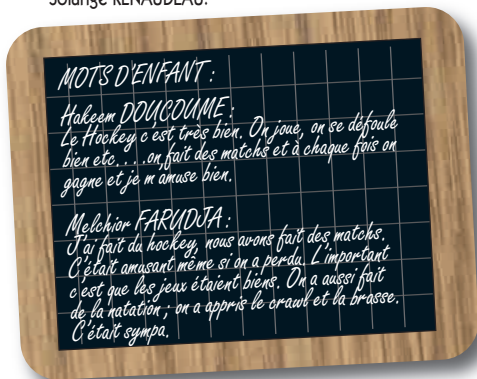 Solange RENAUDEAU.
MOTS D'ENFANT :
Hakeem DOUCOUME :
Le Hockey c est très bien. On joue, on se défoule
bien etc. . . .on fait des matchs et à chaque fois on
gagne et je m amuse bien.
Melchior FARUDJA :
J'ai fait du hockey, nous avons fait des matchs.
C'était amusant même si on a perdu. L'important
c est que les jeux étaient biens. On a aussi fait
de la natation ; on a appris le crawl et la brasse.
C'était sympa.